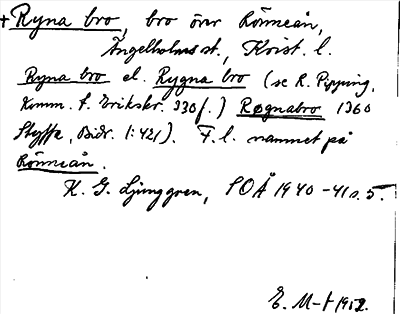 + Ryna bro, bro över Rönneån,
Ängelholms st., Krist. l.
Ryna bro el. Rygna bro (se R. Pipping,
Komm. t. Erikskr. 330f.) Røgnabro 1360
Styffe, Bidr. 1:421). F.l. namnet på
Rönneån.
K. G. Ljunggren, SOÅ 1940-41 s. 5.
E. M-t 1952.